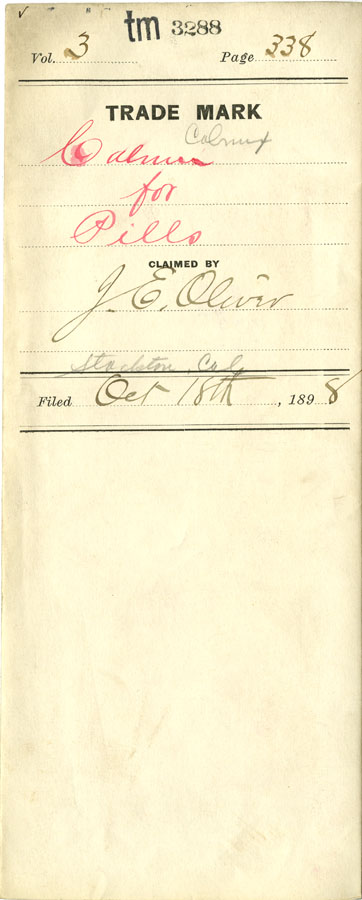 tm 3288
Vol. 3 Page 338
TRADE MARK
Calmux
for
Pills
CLAIMED BY
J. E. Oliver
Stockton, Cal.
Filed Oct 18th, 1898